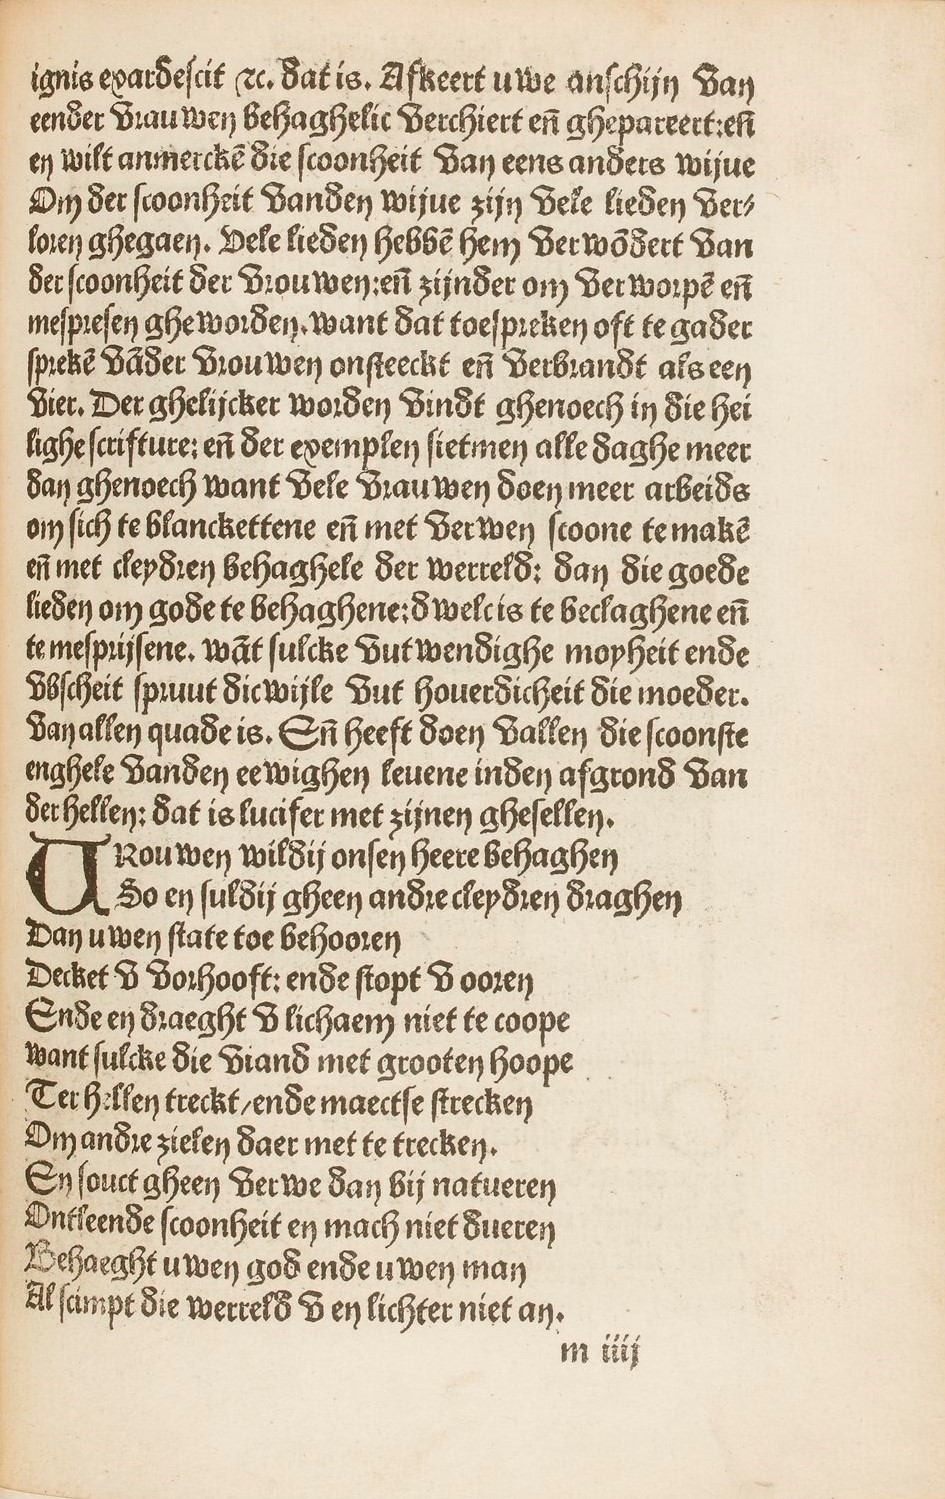 ignis exardescit ⁊c. dat is. Afkeert uwe anschijn van
eender vrauwen behaghelic verchiert eñ ghepareert:eñ
en wilt anmerckē die scoonheit van eens anders wijue
Om der scoonheit vanden wijue zijn vele lieden ver⸗
loren ghegaen. Vele lieden hebbē hem verwōdert van
der scoonheit der vrouwen:eñ zijnder om verworpē eñ
mespresen gheworden.want dat toespreken oft te gader
sprekē vāder vrouwen onsteeckt eñ verbrandt als een
vier. Der ghelijcker worden vindt ghenoech in die hei
lighe scrifture: eñ der exemplen sietmen alle daghe meer
dan ghenoech want vele vrauwen doen meer arbeids
om sich te blanckettene eñ met verwen scoone te makē
eñ met cleydren behaghele der werreld: dan die goede
lieden om gode te behaghene:dwelc is te beclaghene eñ
te mesprijsene. wāt sulcke vutwendighe moyheit ende
vbscheit spruut dicwijle vut houerdicheit die moeder.
van allen quade is. Eñ heeft doen vallen die scoonste
enghele vanden eewighen leuene inden afgrond van
der hellen: dat is lucifer met zijnen ghesellen.
VRouwen wildij onsen heere behaghen
So en suldij gheen andre cleydren draghen
Dan uwen state toe behooren
Decket v vorhooft: ende stopt v ooren
Ende en draeght v lichaem niet te coope
want sulcke die viand met grooten hoope
Ter hellen treckt/ende maectse strecken
Om andre zielen daer met te trecken.
En souct gheen verwe dan bij natueren
Ontleende scoonheit en mach niet dueren
Behaeght uwen god ende uwen man
Al scimpt die werreld v en lichter niet an.
m iiij